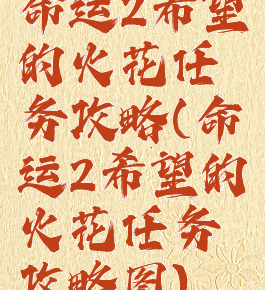 命运2希望
的火花任
务攻略(命
运2希望的
火花任务
攻略图)